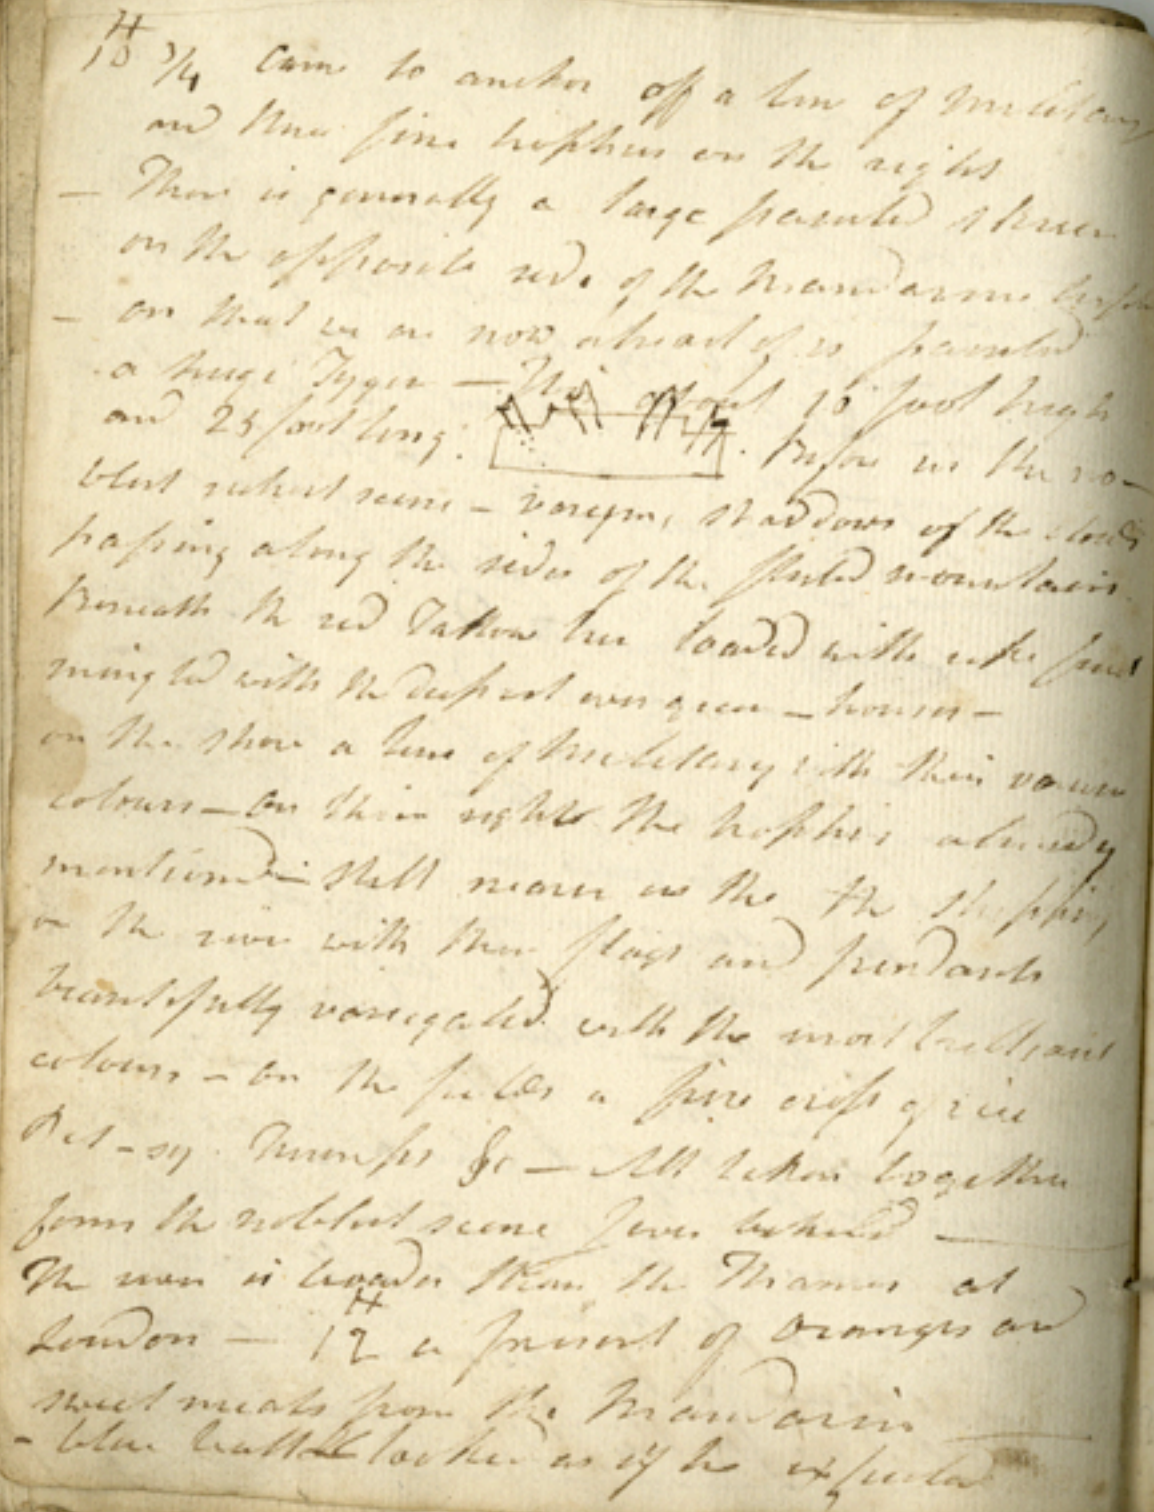 H
10 3/4 came to anchor off a line of military
and three fine trophies on the right
— There is generally a large painted skreen
on the opposite side of the Mandarines
— on that we are now abreast of is painted
a huge Tyger — This about 10 foot high
and 25 foot long. Before us the no-
blest richest scene — shaddows of the clouds
passing along the sides of the fluted mountains.
Beneath the red Tallow tree loaded with
mingled with the deepest evergreen — houses —
on the shore a line of military with their various
colours — on their right the trophies already
mentioned — still nearer us the the shipping
on the river with their flags and pendants
beautifully variegated with the most brilliant
colours — on the fields a fine crop of rice
Pet-sy. Turnips &c — All taken together
forms the noblest scene I ever beheld —
The river is broader than the Thames at
H
London — 12 a present of Oranges and
sweet meats from the Mandarin
— blue looked as if he expected